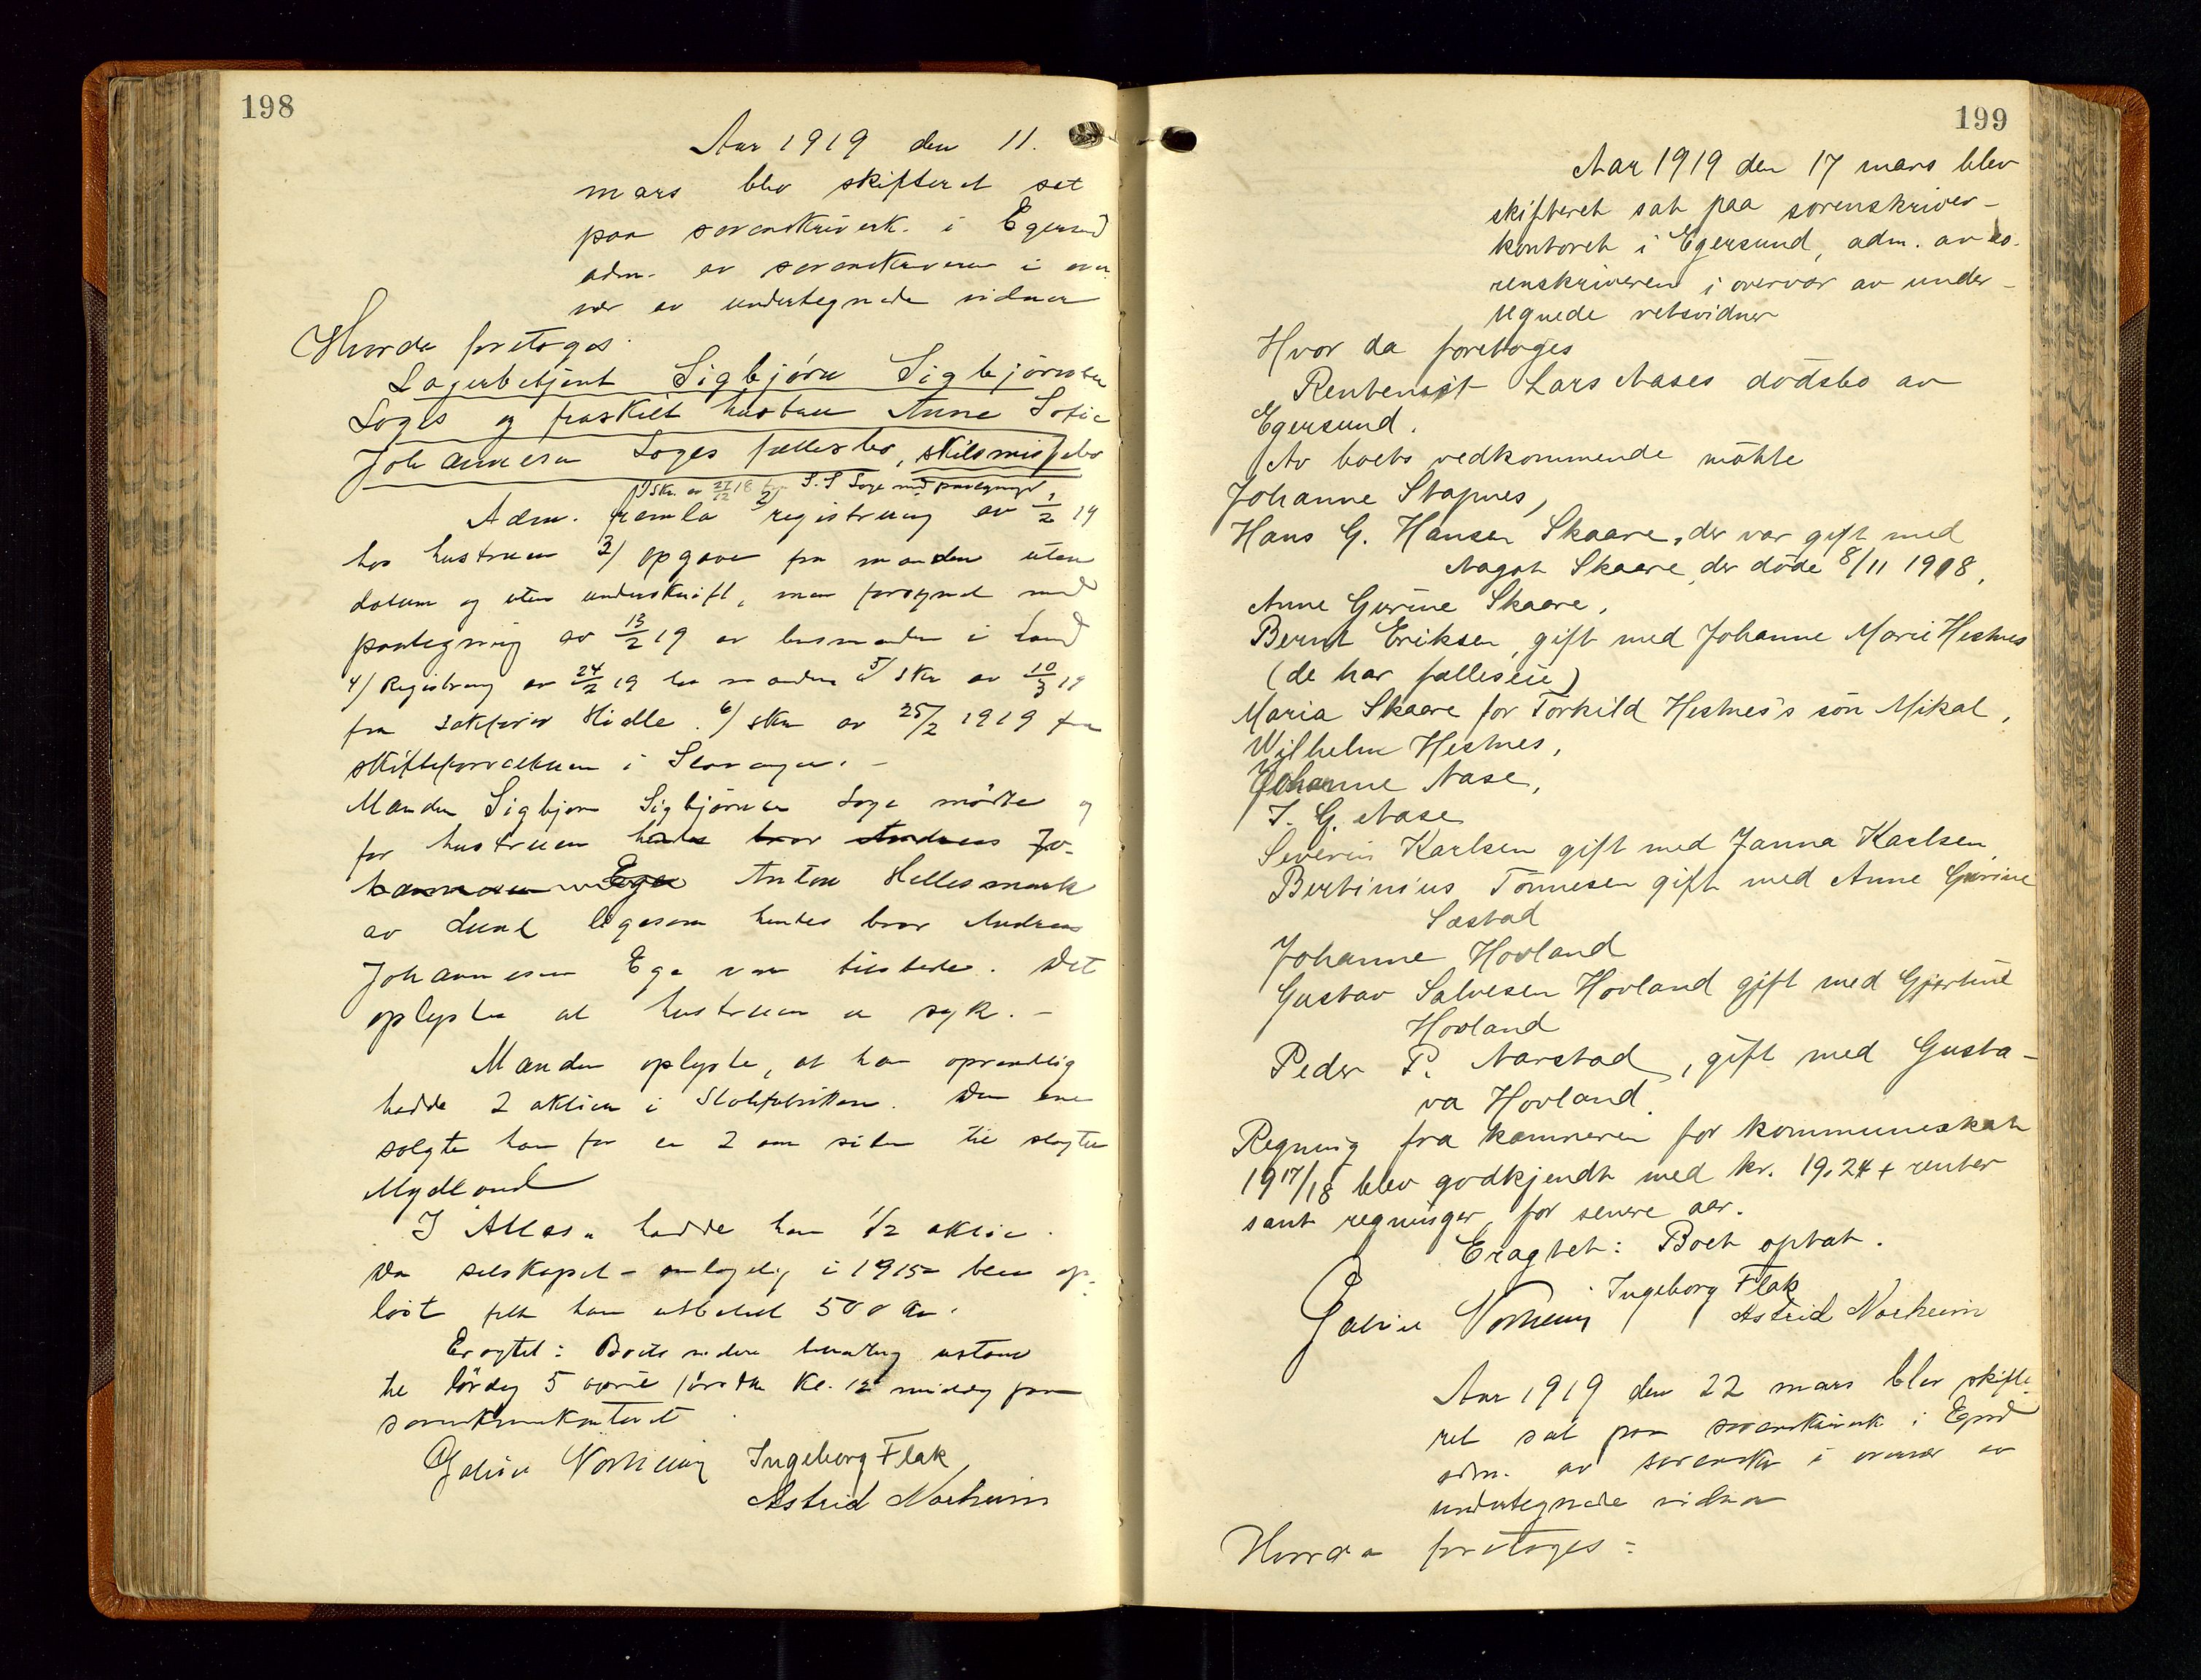 198
Aar 1919 den 11.
mars blev skifteret sat
paa sorenskriverk. i Egersund
adm. av sorenskriveren i over
vær av undertegnede vidner
Hvorda foretoges:
Lagerbetjent Sigbjørn Sigbjørnsen
Loges og fraskilt hustru Anne Sofie
Johannesen Loges fællesbo, skilsmissebo
1/ Skr. av 27/12 18 fra S. S Loge med paategning
Adm. fremla 2/ registrering av 1/2 19
hos hustruen 3/ opgave fra manden uten
datum og uten underskrift, men forsynet med
paategning av 13/2 19 av lensmanden i Lund
4/ Registrering av 24/2 19 hos manden 5/ Skr av 10/3 19
fra sakfører Hidle. 6/ skr av 25/2 1919 fra
skifteforvalteren i Stavanger. –
Manden Sigbjørn Sigbjørnsen Loge mødte og
for hustruen hendes bror Andreas Jo-
hannesen Ege Anton Hellesmark
av Lund ligesom hendes bror Andreas
Johannesen Ege var tilstede. Det
oplystes at hustruen er syk. –
Manden oplyste, at han oprindelig
hadde 2 aktier i Stolefabrikken. Den ene
solgte han for en 2 aar siden til slagter
Mydland
I "Atlas" hadde han 1/2 aktie.
Da selskapet – antagelig i 1915 – blev op-
løst fik han utbetalt 500 kr.
Eragtet: Boets videre behandling utstaar
til lørdag 5 april førstk. kl. 12 middag paa
sorenskriverkontoret
Gabriel Norheim Ingeborg Flak
Astrid Norheim
199
Aar 1919 den 17 mars blev
skifteret sat paa sorenskriver-
kontoret i Egersund, adm. av so-
renskriveren i overvær av under-
tegnede retsvidner
Hvor da foretoges
Rentenist Lars Aases dødsbo av
Egersund.
Av boets vedkommende møtte
Johanne Stapnes,
Hans G. Hansen Skaare, der var gift med
Aagot Skaare, der døde 8/11 1918,
Anne Gurine Skaare,
Bernt Eriksen, gift med Johanne Marie Hestnes
(de har fælleseie)
Maria Skaare for Torkild Hestnes's søn Mikal,
Wilhelm Hestnes,
Johanne Aase,
T. G. Aase
Severin Karlsen gift med Janna Karlsen
Bertinius Tønnesen gift med Anne Gurine
Sæstad
Johanne Hovland
Gustav Salvesen Hovland gift med Gjertine
Hovland
Peder P. Aarstad, gift med Gusta-
va Hovland.
Regning fra kæmneren for kommuneskat
1917/18 blev godkjendt med kr. 19.24 + renter
samt regninger for senere aar.
Eragtet: Boet optat.
Gabriel Norheim Ingeborg Flak
Astrid Norheim
Aar 1919 den 22 mars blev skifte-
ret sat paa sorenskriverk i Egersd
adm. av sorenskr i overvær av
undertegnede vidner
Hvorda foretoges: